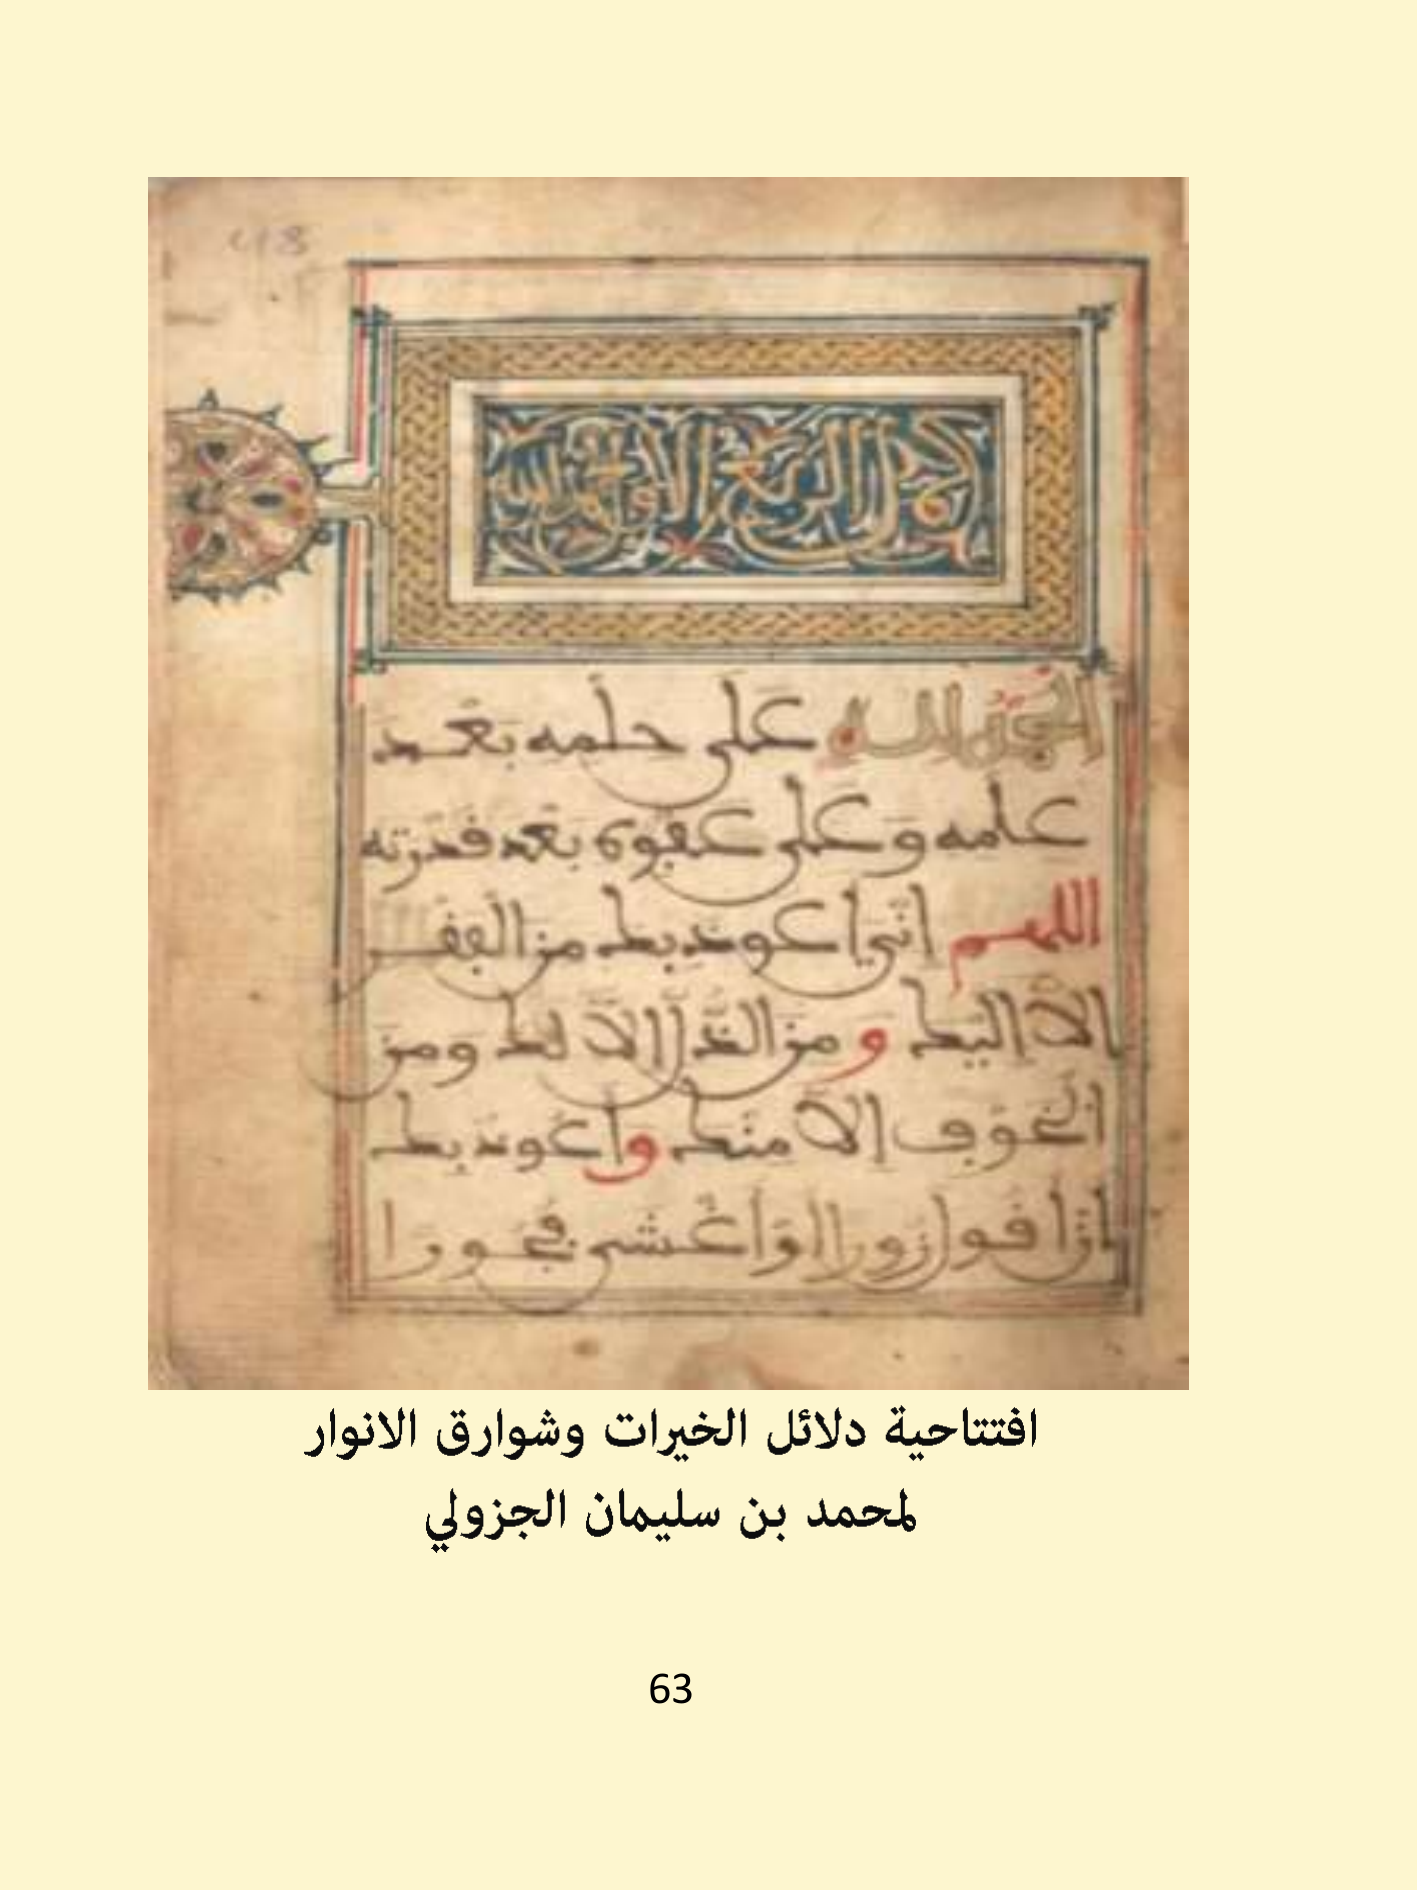 كمل الربع الاول
الحمد لله على حلمه بعد
علمه وعلى عفوه بعد قدرته
اللهم انى اعوذ بك من الفقر
الا اليك ومن الذل الا لك ومن
الخوف الا منك واعوذ بك
ان اقول زورا او اغشى فجورا
افتتاحية دلائل الخيرات وشوارق الانوار
لمحمد بن سليمان الجزولي
63